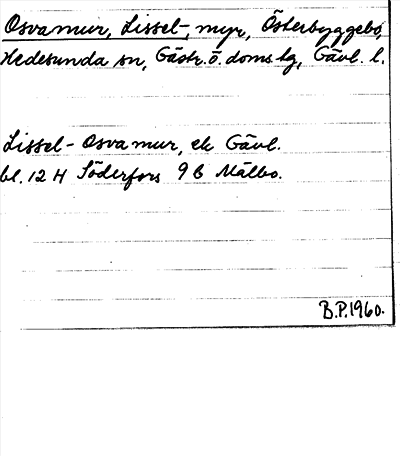 Osvamur, Lissel-, myr, Österbyggebo,
Hedesunda sn, Gästr. ö. doms tg, Gävl. l.
Lissel-Osvamur, ek Gävl.
bl. 12 H Söderfors 9 B Mälbo.
B.P. 1960.